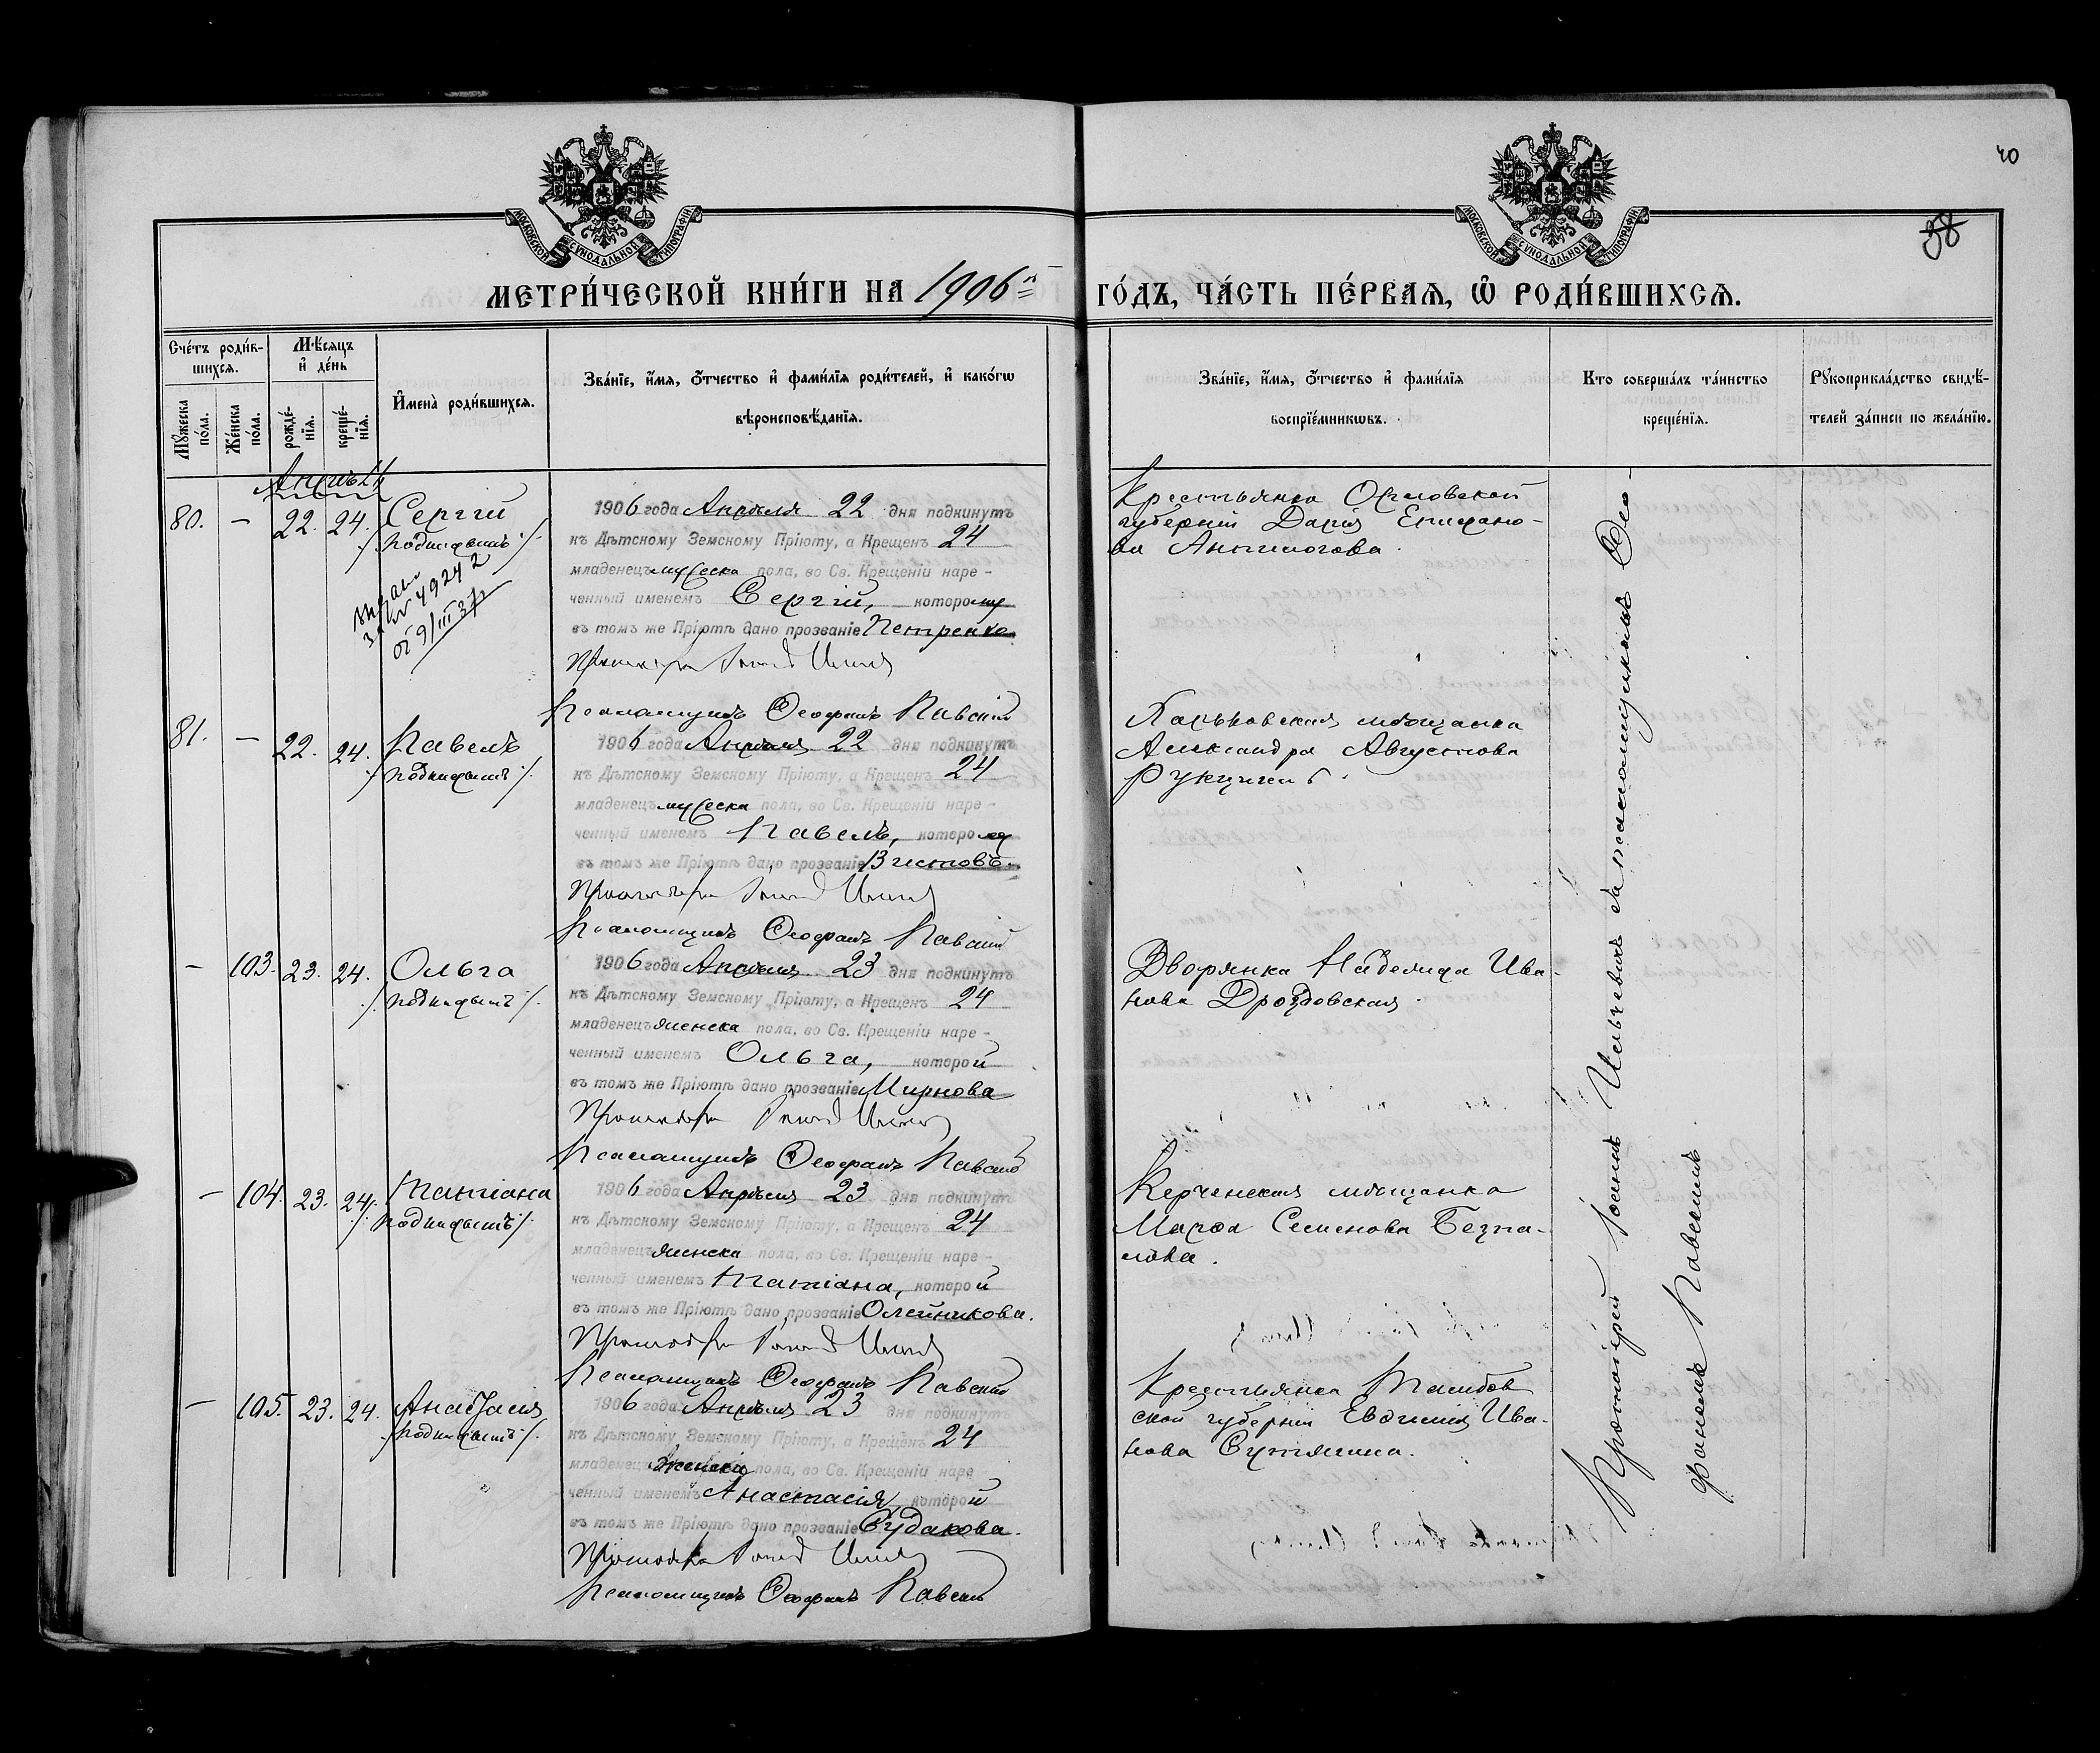 40
38
МОСКОВСКОЙ СѴНОДАЛЬНОЙ ТИПОГРАФІИ
МОСКОВСКОЙ СѴНОДАЛЬНОЙ ТИПОГРАФІИ
МЕТРИ́ЧЕСКОЙ КНИ́ГИ НА 1906й ГО́ДЪ, ЧА́СТЬ ПЕ́РВАѦ, Ѡ РОДИ́ВШИХСѦ.
Сче́тъ роди́в-
шихсѧ.
Мꙋжеска по́ла.
Же́нска по́ла.
Мѣ́сѧцъ
и҆ де́нь
рожде́-
нїѧ.
креще́-
нїѧ.
И҆мена̀ роди́вшихсѧ.
Зва́нїе, и҆́мѧ, ѻ҆́тчество и҆ фами́лїѧ роди́телей, и҆ како́гѡ
вѣроисповѣ́данїѧ.
Зва́нїе, и҆́мѧ, ѻ҆́тчество и҆ фами́лїѧ
воспрїе́мникѡвъ.
Кто соверша́лъ та́инство
креще́нїѧ.
Рꙋкоприкла́дство свидѣ́-
телей за́писи по жела́нїю.
Апрѣль
80. — 22. 24. Сергій
/.подкидышъ./
49242
от 9/III 37г
1906 года Апрѣля 22 дня подкинутъ
къ Дѣтскому Земскому Пріюту, а Крещенъ 24
младенецъ мужеска пола, во Св. Крещеніи наре-
ченный именемъ Сергій, которому
въ томъ же Пріютѣ дано прозваніе Петренко
Псаломщикъ Ѳеофанъ Павскій
Крестьянка Орловской
губерніи Дарія Епифано-
ва Анпилогова.
81. — 22. 24. Павелъ
/.подкидышъ./
1906 года Апрѣля 22 дня подкинутъ
къ Дѣтскому Земскому Пріюту, а Крещенъ 24
младенецъ мужеска пола, во Св. Крещеніи наре-
ченный именемъ Павелъ, которому
въ томъ же Пріютѣ дано прозваніе
Псаломщикъ Ѳеофанъ Павскій
Харьковская мѣщанка
Александра Августова
— 103. 23. 24. Ольга
/.подкидышъ./
1906 года Апрѣля 23 дня подкинутъ
къ Дѣтскому Земскому Пріюту, а Крещенъ 24
младенецъ женска пола, во Св. Крещеніи наре-
ченный именемъ Ольга, которой
въ томъ же Пріютѣ дано прозваніе Мирнова
Псаломщикъ Ѳеофанъ Павскій
Дворянка Надежда Ива-
нова Дроздовская.
— 104. 23. 24. Татіана
/.подкидышъ./
1906 года Апрѣля 23 дня подкинутъ
къ Дѣтскому Земскому Пріюту, а Крещенъ 24
младенецъ женска пола, во Св. Крещеніи наре-
ченный именемъ Татіана, которой
въ томъ же Пріютѣ дано прозваніе Олейникова.
Псаломщикъ Ѳеофанъ Павскій
Керченская мѣщанка
Марѳа Семенова Безпа-
лова.
— 105. 23. 24. Анастасія
/.подкидышъ./
1906 года Апрѣля 23 дня подкинутъ
къ Дѣтскому Земскому Пріюту, а Крещенъ 24
младенецъ женска пола, во Св. Крещеніи наре
ченный именемъ Анастасія, которой
въ томъ же Пріютѣ дано прозваніе Судакова.
Псаломщикъ Ѳеофанъ Павскій
Крестьянка Тамбов
ской губерніи Евдокія Ива-
нова Сутягина.
Протоіерей Іоаннъ Ильчевичъ съ псаломщикомъ Ѳео-
фаномъ Павскимъ.